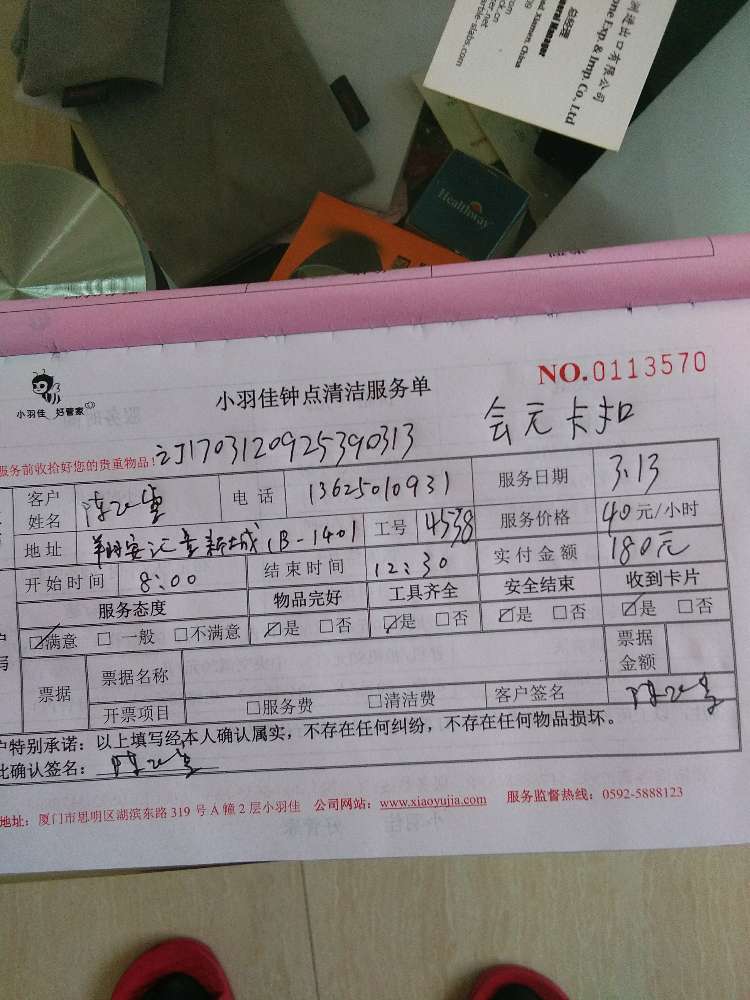 洲进出口有限公司
ome Exp. & Imp. Co., Ltd
总经理
General Manager
Xiamen, China
Healthway
小羽佳 好管家
小羽佳钟点清洁服务单
NO.0113570
服务前收拾好您的贵重物品!
订1703120925390313
会元卡扣
客户姓名
电话 13625010931
服务日期 3.13
地址
新城 1B-1401
工号 4538
服务价格 40元/小时
开始时间 8:00
结束时间 12:30
实付金额 180元
服务态度 物品完好 工具齐全 安全结束 收到卡片
☑满意 □一般 □不满意 ☑是 □否 ☑是 □否 ☑是 □否 ☑是 □否
票据 票据名称 票据金额
开票项目 □服务费 □清洁费 客户签名
户特别承诺:以上填写经本人确认属实,不存在任何纠纷,不存在任何物品损坏。
此确认签名:
地址:厦门市思明区湖滨东路319号A幢2层小羽佳 公司网站:www.xiaoyujia.com 服务监督热线:0592-5888123